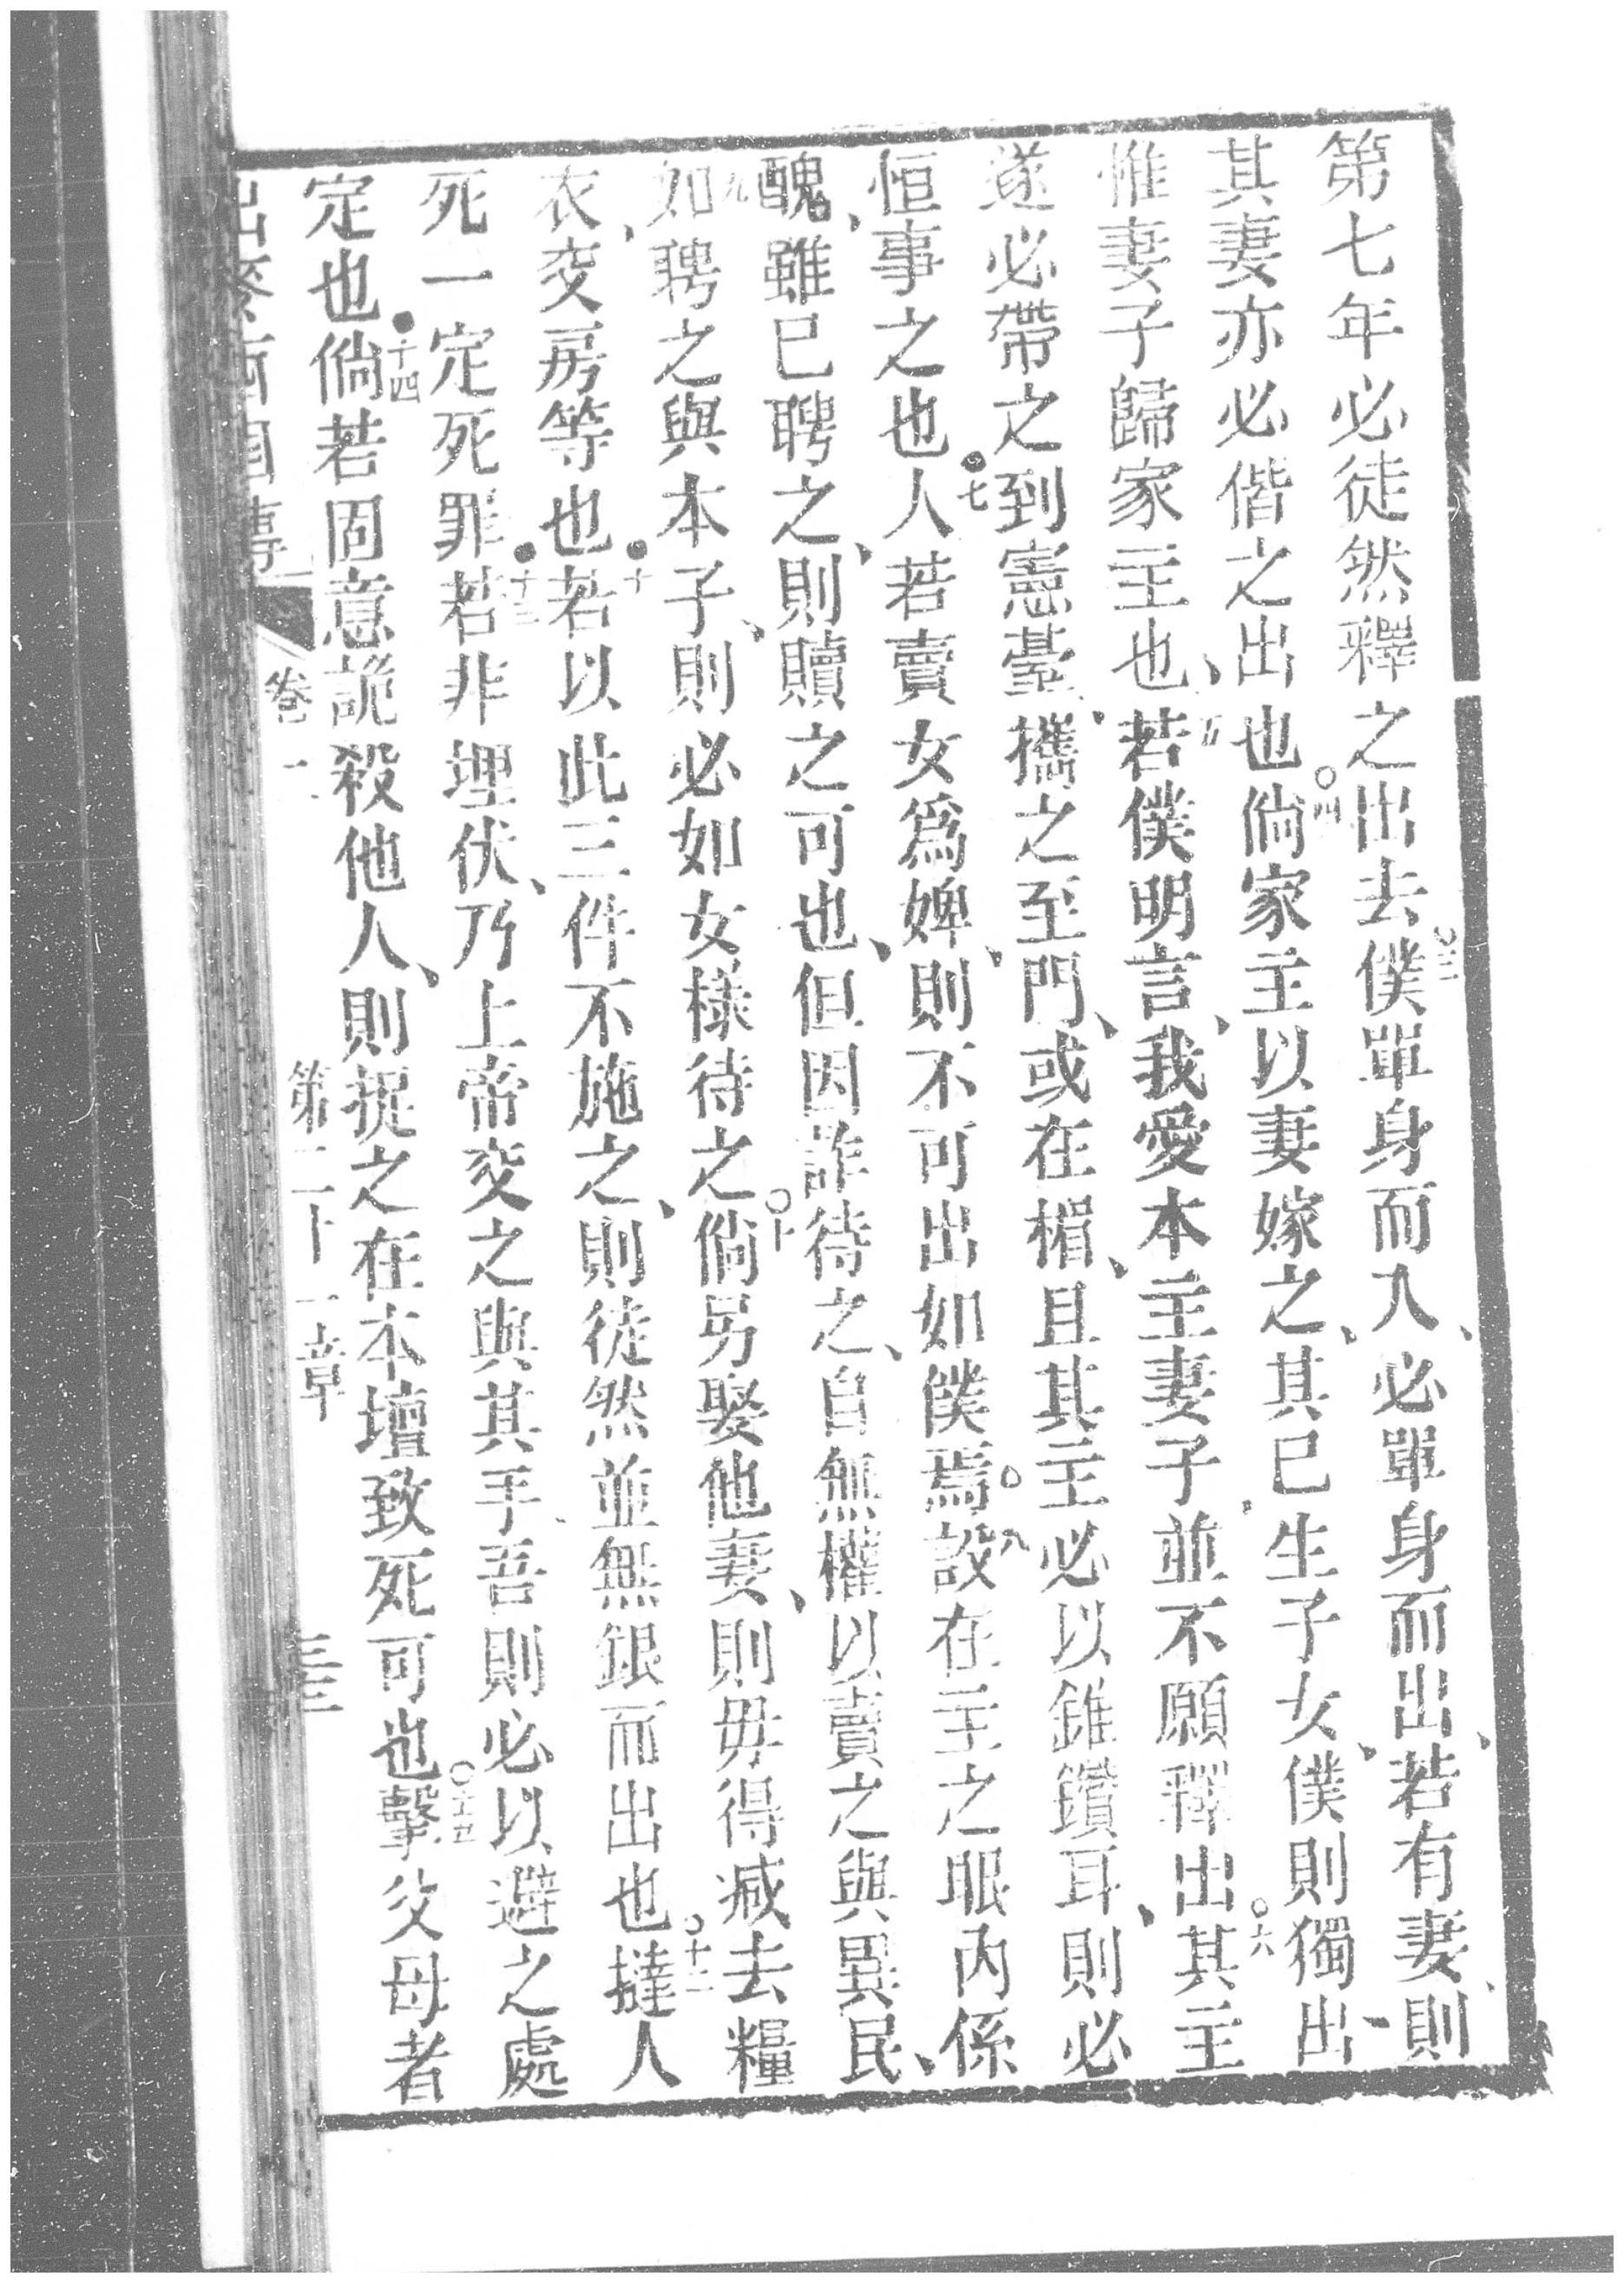 第七年必徒然釋之出去○三僕單身而入、必單身而出、若有妻、則
其妻亦必偕之出也○四倘家主以妻嫁之、其已生子女、僕則獨出
惟妻子歸家主也、五若僕明言、我愛本主妻子、並不願釋出○六其主
遂必帶之到憲臺、攜之至門、或在楣、且其主必以錐鑽耳、則必
恒事之也●七人若賣女爲婢、則不可出如僕焉○八設在主之眼內係
醜、雖已聘之、則贖之可也、但因詐待之、自無權以賣之與異民、
九如聘之與本子、則必如女樣待之○十倘另娶他妻、則毋得减去糧
衣、交房等也●十一若以此三件不施之、則徒然並無銀而出也○十二撻人
死一定死罪●十三若非埋伏、乃上帝交之與其手、吾則必以避之處
定也●十四倘若固意詭殺他人、則捉之在本壇致死可也○十五擊父母者
出麥西國傳 卷一 第二十一章 三三